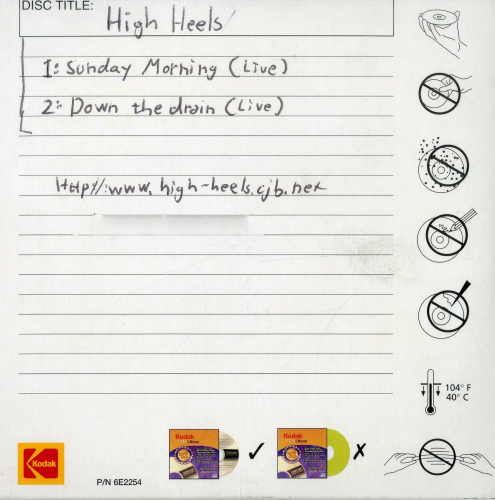 DISC TITLE: High Heels
1: Sunday Morning (Live)
2: Down the drain (Live)
Http//:www.high-heels.cjb.net
104° F
40° C
Kodak
P/N 6E2254
Kodak
Ultima
Kodak
Ultima